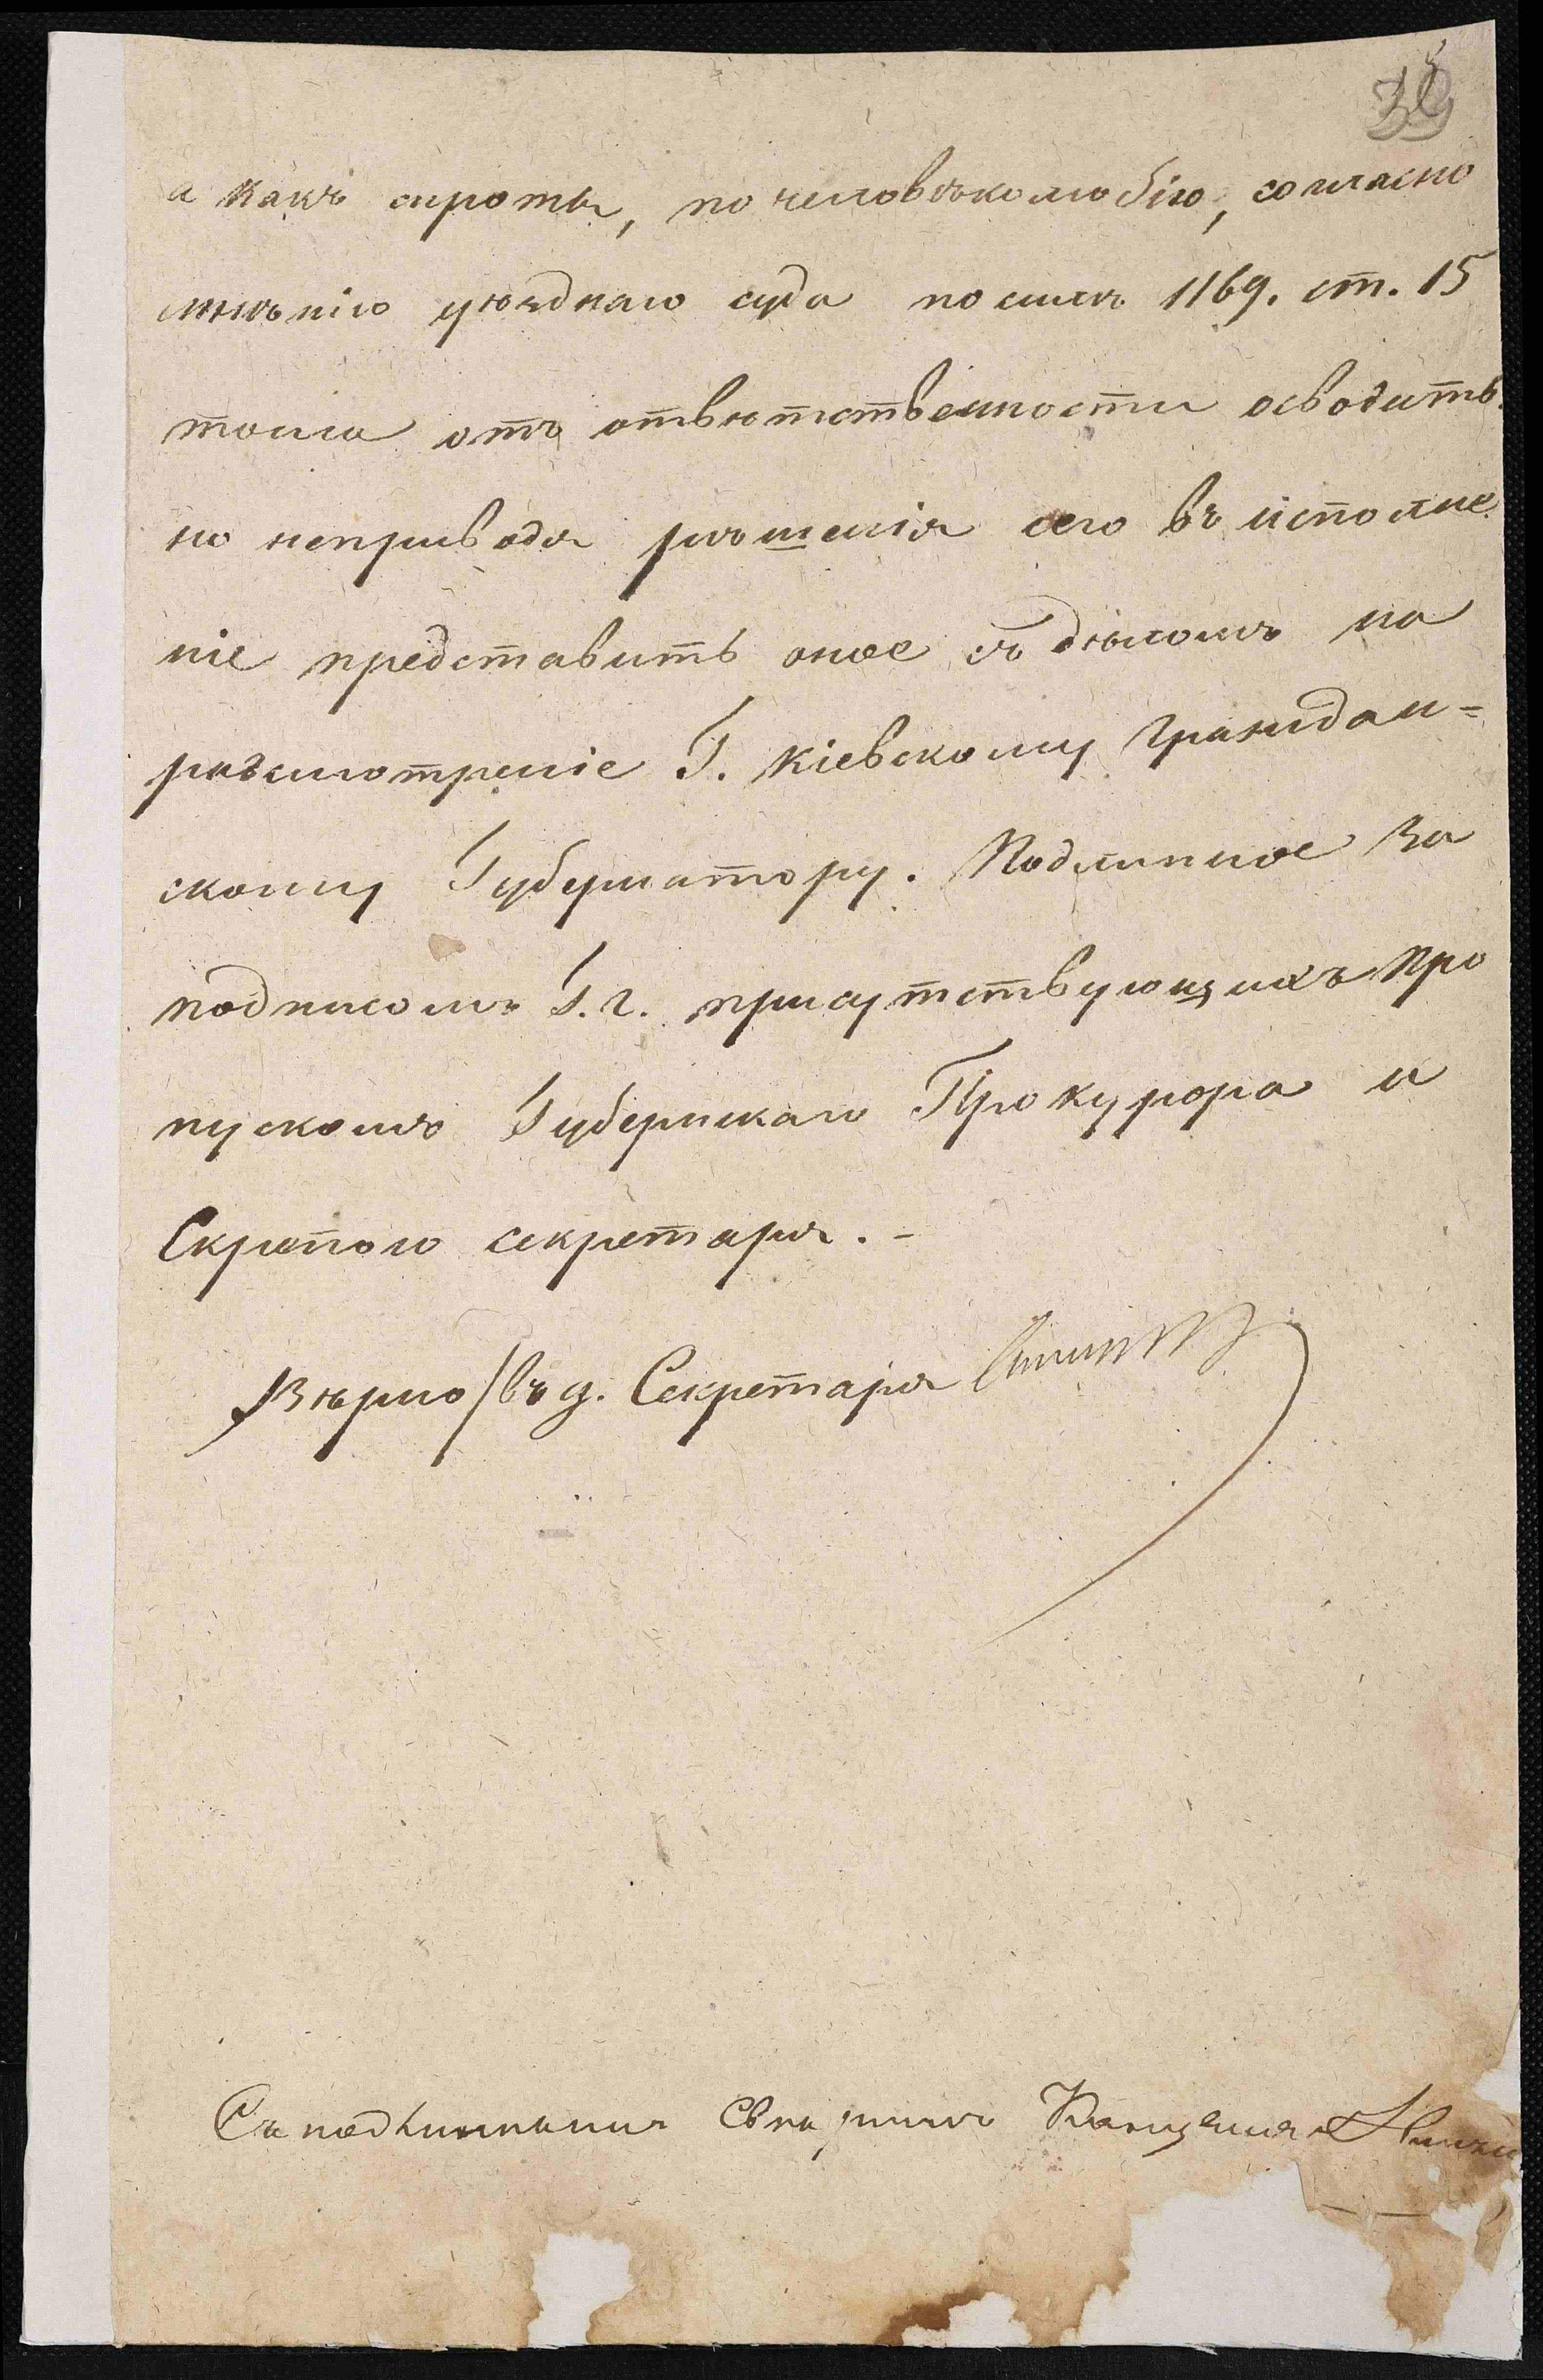 а какъ сироты, по человѣколюбію, согласно
мнѣнію уѣзднаго суда по силѣ 1169. ст. 15
тома отъ отвѣтственности освободить
но неприводя рѣшенія сего въ исполне
ніе представить оное съ дѣломъ на
разсмотреніе Г. Кіевскому Граждан=
скому Губернатору. Подлинное за
подписомъ Г.г. присутствующихъ про
пускомъ Губернскаго Прокурора и
Скрѣпою секретаря.-
Вѣрно / въ д. Секретаря
Съ подлиннымъ Свѣрилъ Канцеляр